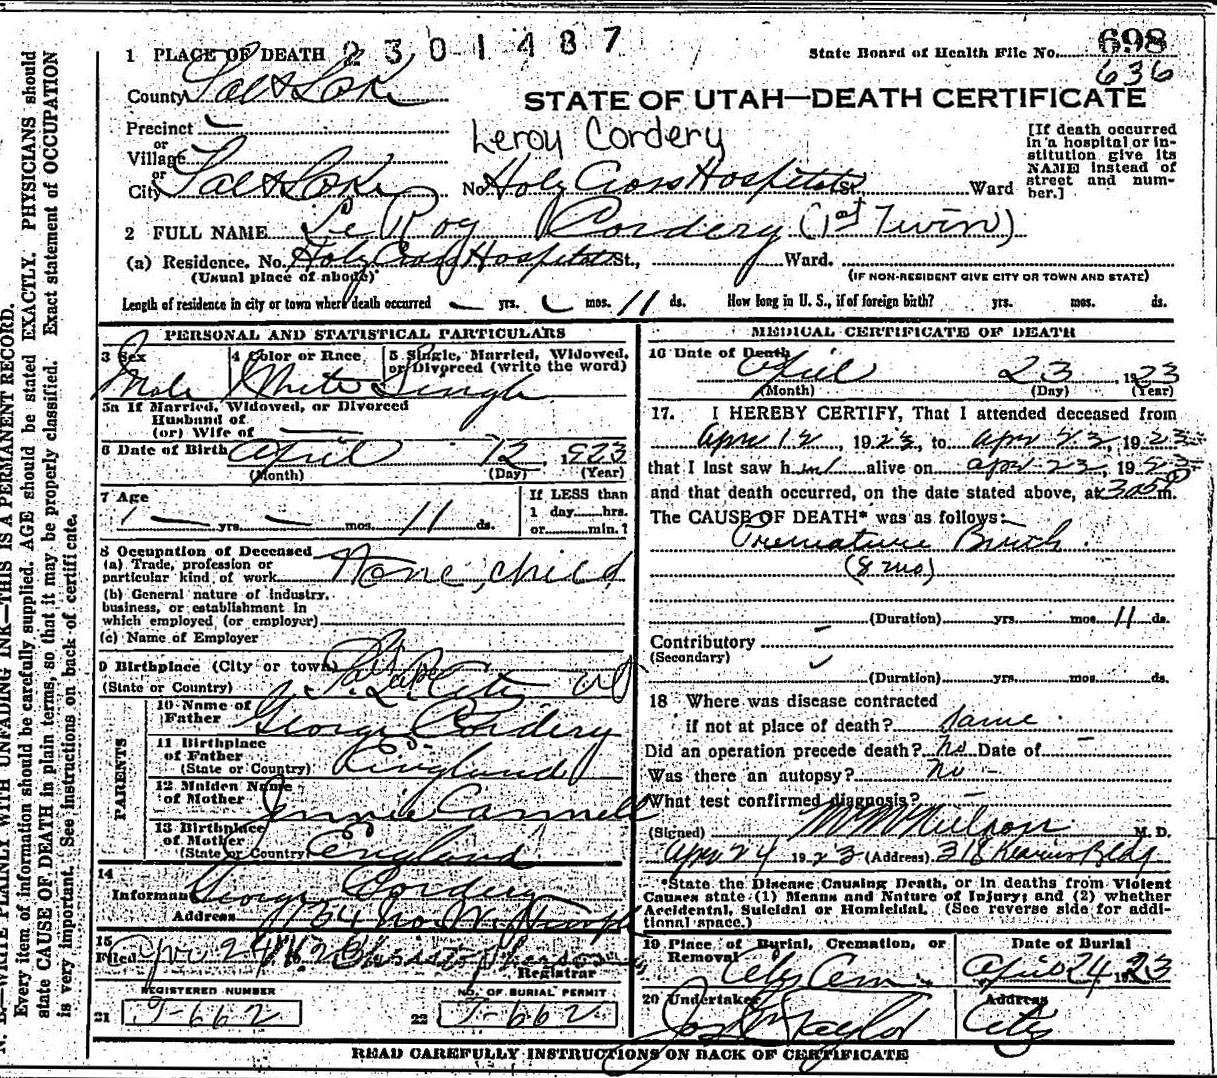 1 PLACE OF DEATH 2301487
State Board of Health File No. 698
636
County Salt Lake
STATE OF UTAH—DEATH CERTIFICATE
Precinct
or
Village
or
City Salt Lake
Leroy Cordery
No. Holy Cross Hospital St. Ward
[If death occurred
in a hospital or in-
stitution give its
NAME instead of
street and num-
ber.]
2 FULL NAME Le Roy Cordery (1st Twin)
(a) Residence. No. Holy Cross Hospital St., Ward.
(Usual place of abode) (IF NON-RESIDENT GIVE CITY OR TOWN AND STATE)
Length of residence in city or town where death occurred — yrs. mos. 11 ds. How long in U. S., if of foreign birth? yrs. mos. ds.
PERSONAL AND STATISTICAL PARTICULARS
3 Sex 4 Color or Race 5 Single, Married, Widowed,
or Divorced (write the word)
Male White Single
5a If Married, Widowed, or Divorced
Husband of
(or) Wife of —
6 Date of Birth April 12, 1923
(Month) (Day) (Year)
7 Age
— yrs. — mos. 11 ds.
If LESS than
1 day hrs.
or min.?
8 Occupation of Deceased
(a) Trade, profession or
particular kind of work None, child
(b) General nature of industry,
business, or establishment in
which employed (or employer)
(c) Name of Employer
9 Birthplace (City or town)
(State or Country) S. L. City Ut
PARENTS
10 Name of
Father George Cordery
11 Birthplace
of Father
(State or Country) England
12 Maiden Name
of Mother Jennie Cannell
13 Birthplace
of Mother
(State or Country) England
14
Informant George Cordery
Address 1734 No. W. Temple
15
Filed Apr 24 1923
Registrar
REGISTERED NUMBER NO. OF BURIAL PERMIT
21 T-662 22 T-662
MEDICAL CERTIFICATE OF DEATH
16 Date of Death
April 23, 1923
(Month) (Day) (Year)
17. I HEREBY CERTIFY, That I attended deceased from
Apr 12, 1923, to Apr 23, 1923
that I last saw him alive on Apr 23, 1923
and that death occurred, on the date stated above, at 3:05 P m.
The CAUSE OF DEATH* was as follows:
Premature Birth.
(8 mo)
(Duration) yrs. mos. 11 ds.
Contributory —
(Secondary)
(Duration) yrs. mos. ds.
18 Where was disease contracted
if not at place of death? same
Did an operation precede death? No Date of —
Was there an autopsy? No —
What test confirmed diagnosis? —
(Signed) M M Nielson M. D.
Apr 24 1923 (Address) 318 Kearns Bldg
*State the Disease Causing Death, or in deaths from Violent
Causes state (1) Means and Nature of Injury; and (2) whether
Accidental, Suicidal or Homicidal. (See reverse side for addi-
tional space.)
19 Place of Burial, Cremation, or
Removal City Cem.
Date of Burial
April 24 1923
20 Undertaker Jos Wm Taylor
Address
City
READ CAREFULLY INSTRUCTIONS ON BACK OF CERTIFICATE
WRITE PLAINLY WITH UNFADING INK—THIS IS A PERMANENT RECORD.
Every item of information should be carefully supplied. AGE should be stated EXACTLY. PHYSICIANS should
state CAUSE OF DEATH in plain terms, so that it may be properly classified. Exact statement of OCCUPATION
is very important. See instructions on back of certificate.